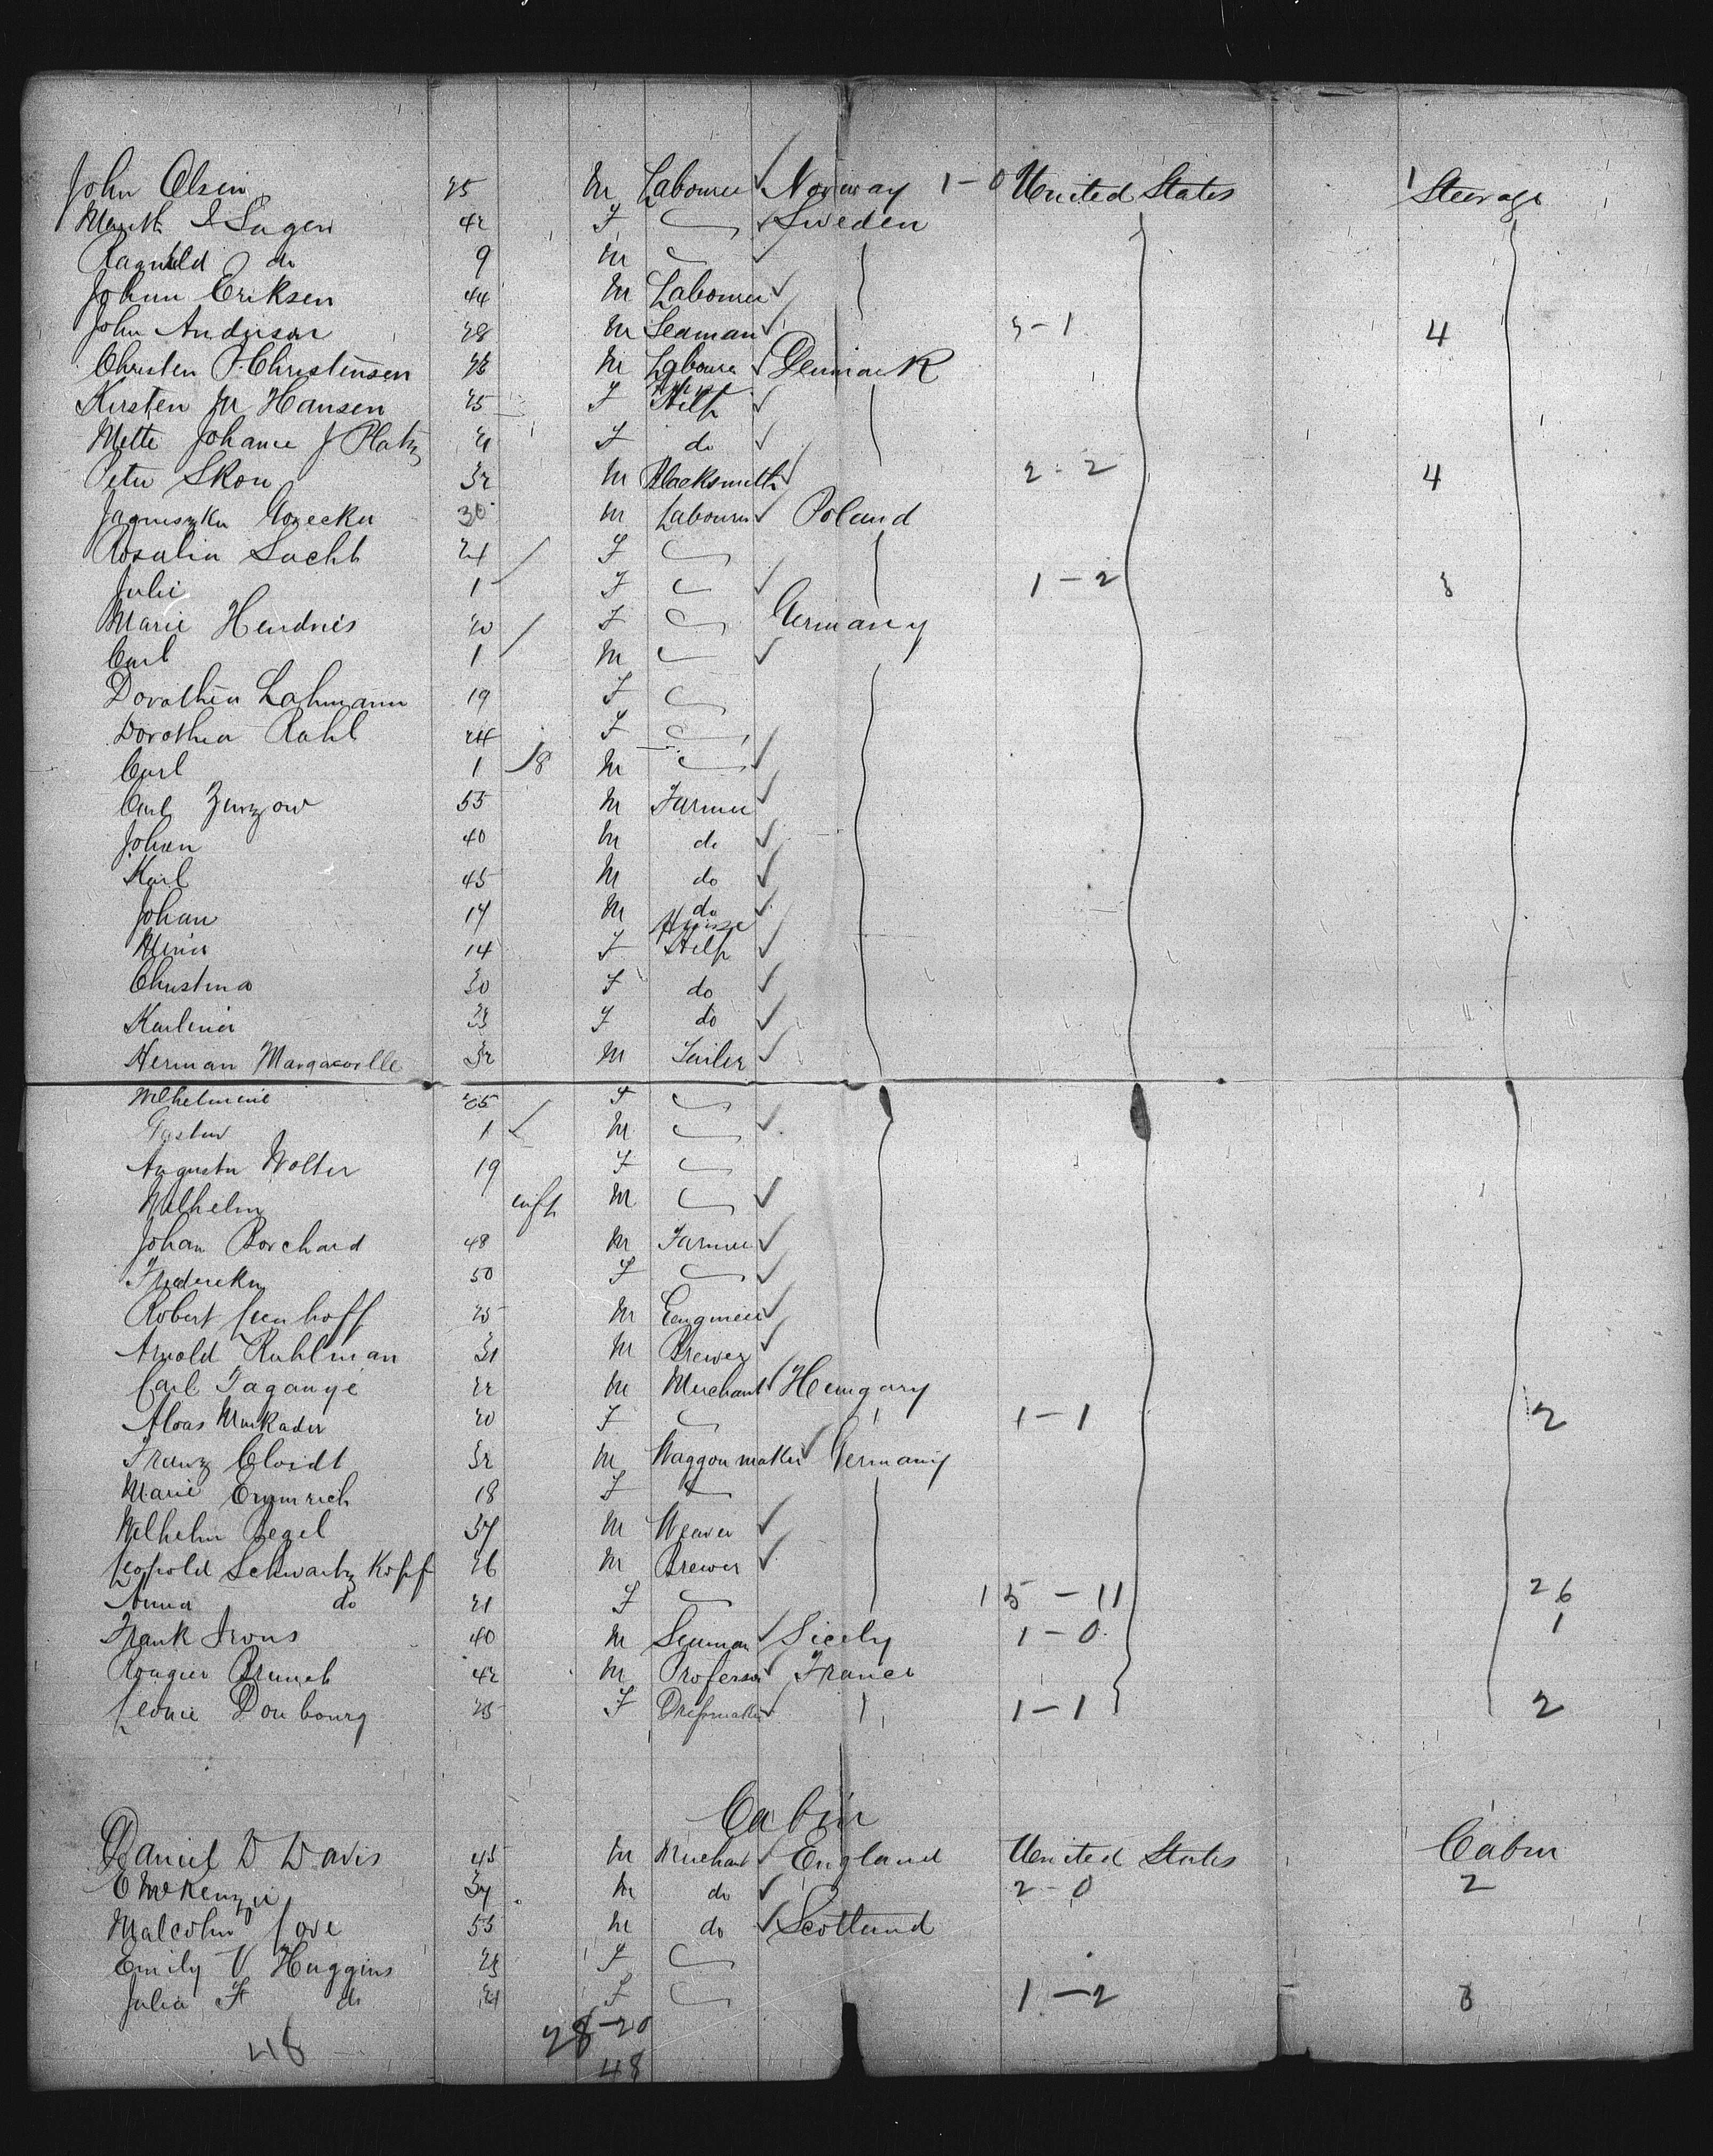 John Olsen 25 M Labourer Norway 1-0 United States 1 Steerage
Marith S Sagen 42 F Sweden
Ragnild do 9 M
Johan Eriksen 44 M Labourer
John Anderson 28 M Seaman 3-1 4
Christen P Christensen 26 M Laboure Denmark
Kirsten M Hansen 25 F House Help
Mette Johane J Platz 21 F do
Peter Skou 32 M Blacksmith 2-2 4
30 M Labourer Poland
Rosalia Lucht 24 F
Julie 1 F 1-2 3
Marie Hendries 20 F Germany
Carl 1 M
Dorothea Lahmann 19 F
Dorothea Rahl 24 F
Carl 1 M
Carl Zurzow 55 M Farmer
Johan 40 M do
Karl 45 M do
Johan 17 M do
Mina 14 F House Help
Christina 20 F do
Karlina F do
Herman 32 M Tailer
Wilhelmine 25 F
Gustav 1 M
Augusta Wolter 19 F
Wilhelm inft M
Johan Borchard 48 M Farmer
Fredericka 50 F
Robert Isenhoff 25 M
Arnold Kuhlman 31 M Brewer
Carl Taganye 22 M Merchant Hungary
20 F 1-1 2
Franz Cloidt 32 M Waggon maker Germany
Marie Emmrich 18 F
Wilhelm Begel 37 M Weaver
Leopold Schwartz Kopf 26 M Brewer
Anna do 21 F 15-11 26
Frank Irons 40 M Seaman Sicely 1-0 1
Rougier Brunet 42 M Professor France
Leonie Doubourg 25 F Dressmaker 1-1 2
Cabin
Daniel D Davis 45 M Merchant England United States Cabin
E McKenzie 37 M do 2-0 2
Malcolm Love 55 M do Scotland
Emily V Huggins 23 F
Julia F do 21 F 1-2 3
48 28-20
48